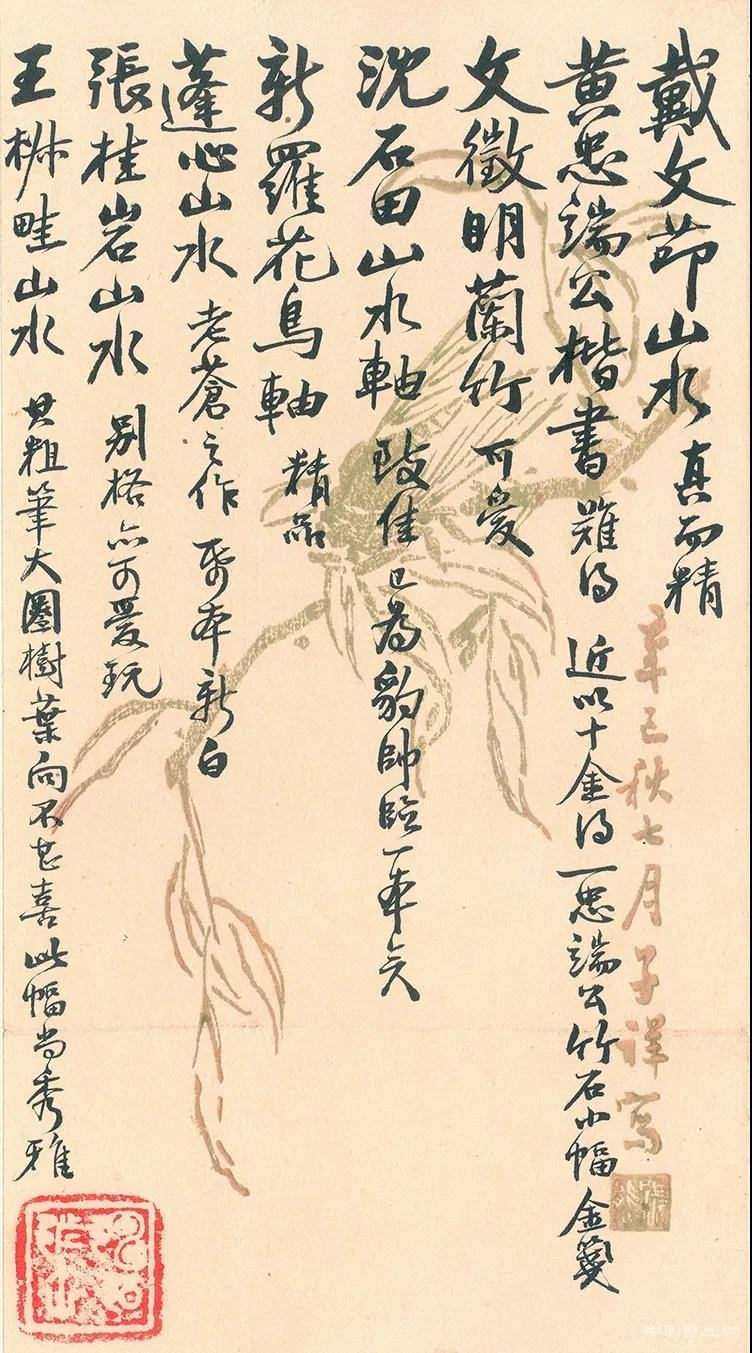 戴文節山水 真而精
黃忠端公楷書 難得 近以十金得一忠端公竹石小幅 金箋
文徵明蘭竹 可愛
沈石田山水軸 致佳 已為豹帥臨一本矣
新羅花鳥軸 精品
蓬心山水 老蒼之作 帋本新白
張桂岩山水 別格亦可愛玩
王椒畦山水 其粗筆大圈樹葉向不甚喜 此幅尚秀雅
辛巳秋七月子祥寫